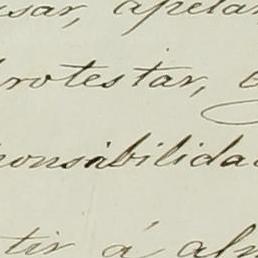 sar, apelar
protestar,
ponsabilidad
tir á